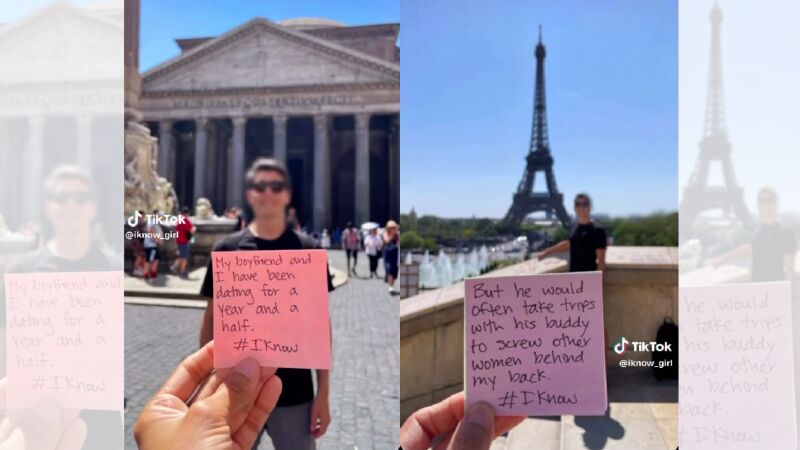 My boyfriend and
I have been
dating for a
year and a
half.
#IKnow
TikTok
@iknow_girl
My boyfriend and
I have been
dating for a
year and a
half.
#IKnow
But he would
often take trips
with his buddy
to screw other
women behind
my back.
#IKnow
TikTok
@iknow_girl
he would
take trips
his buddy
other
behind
back.
#IKnow